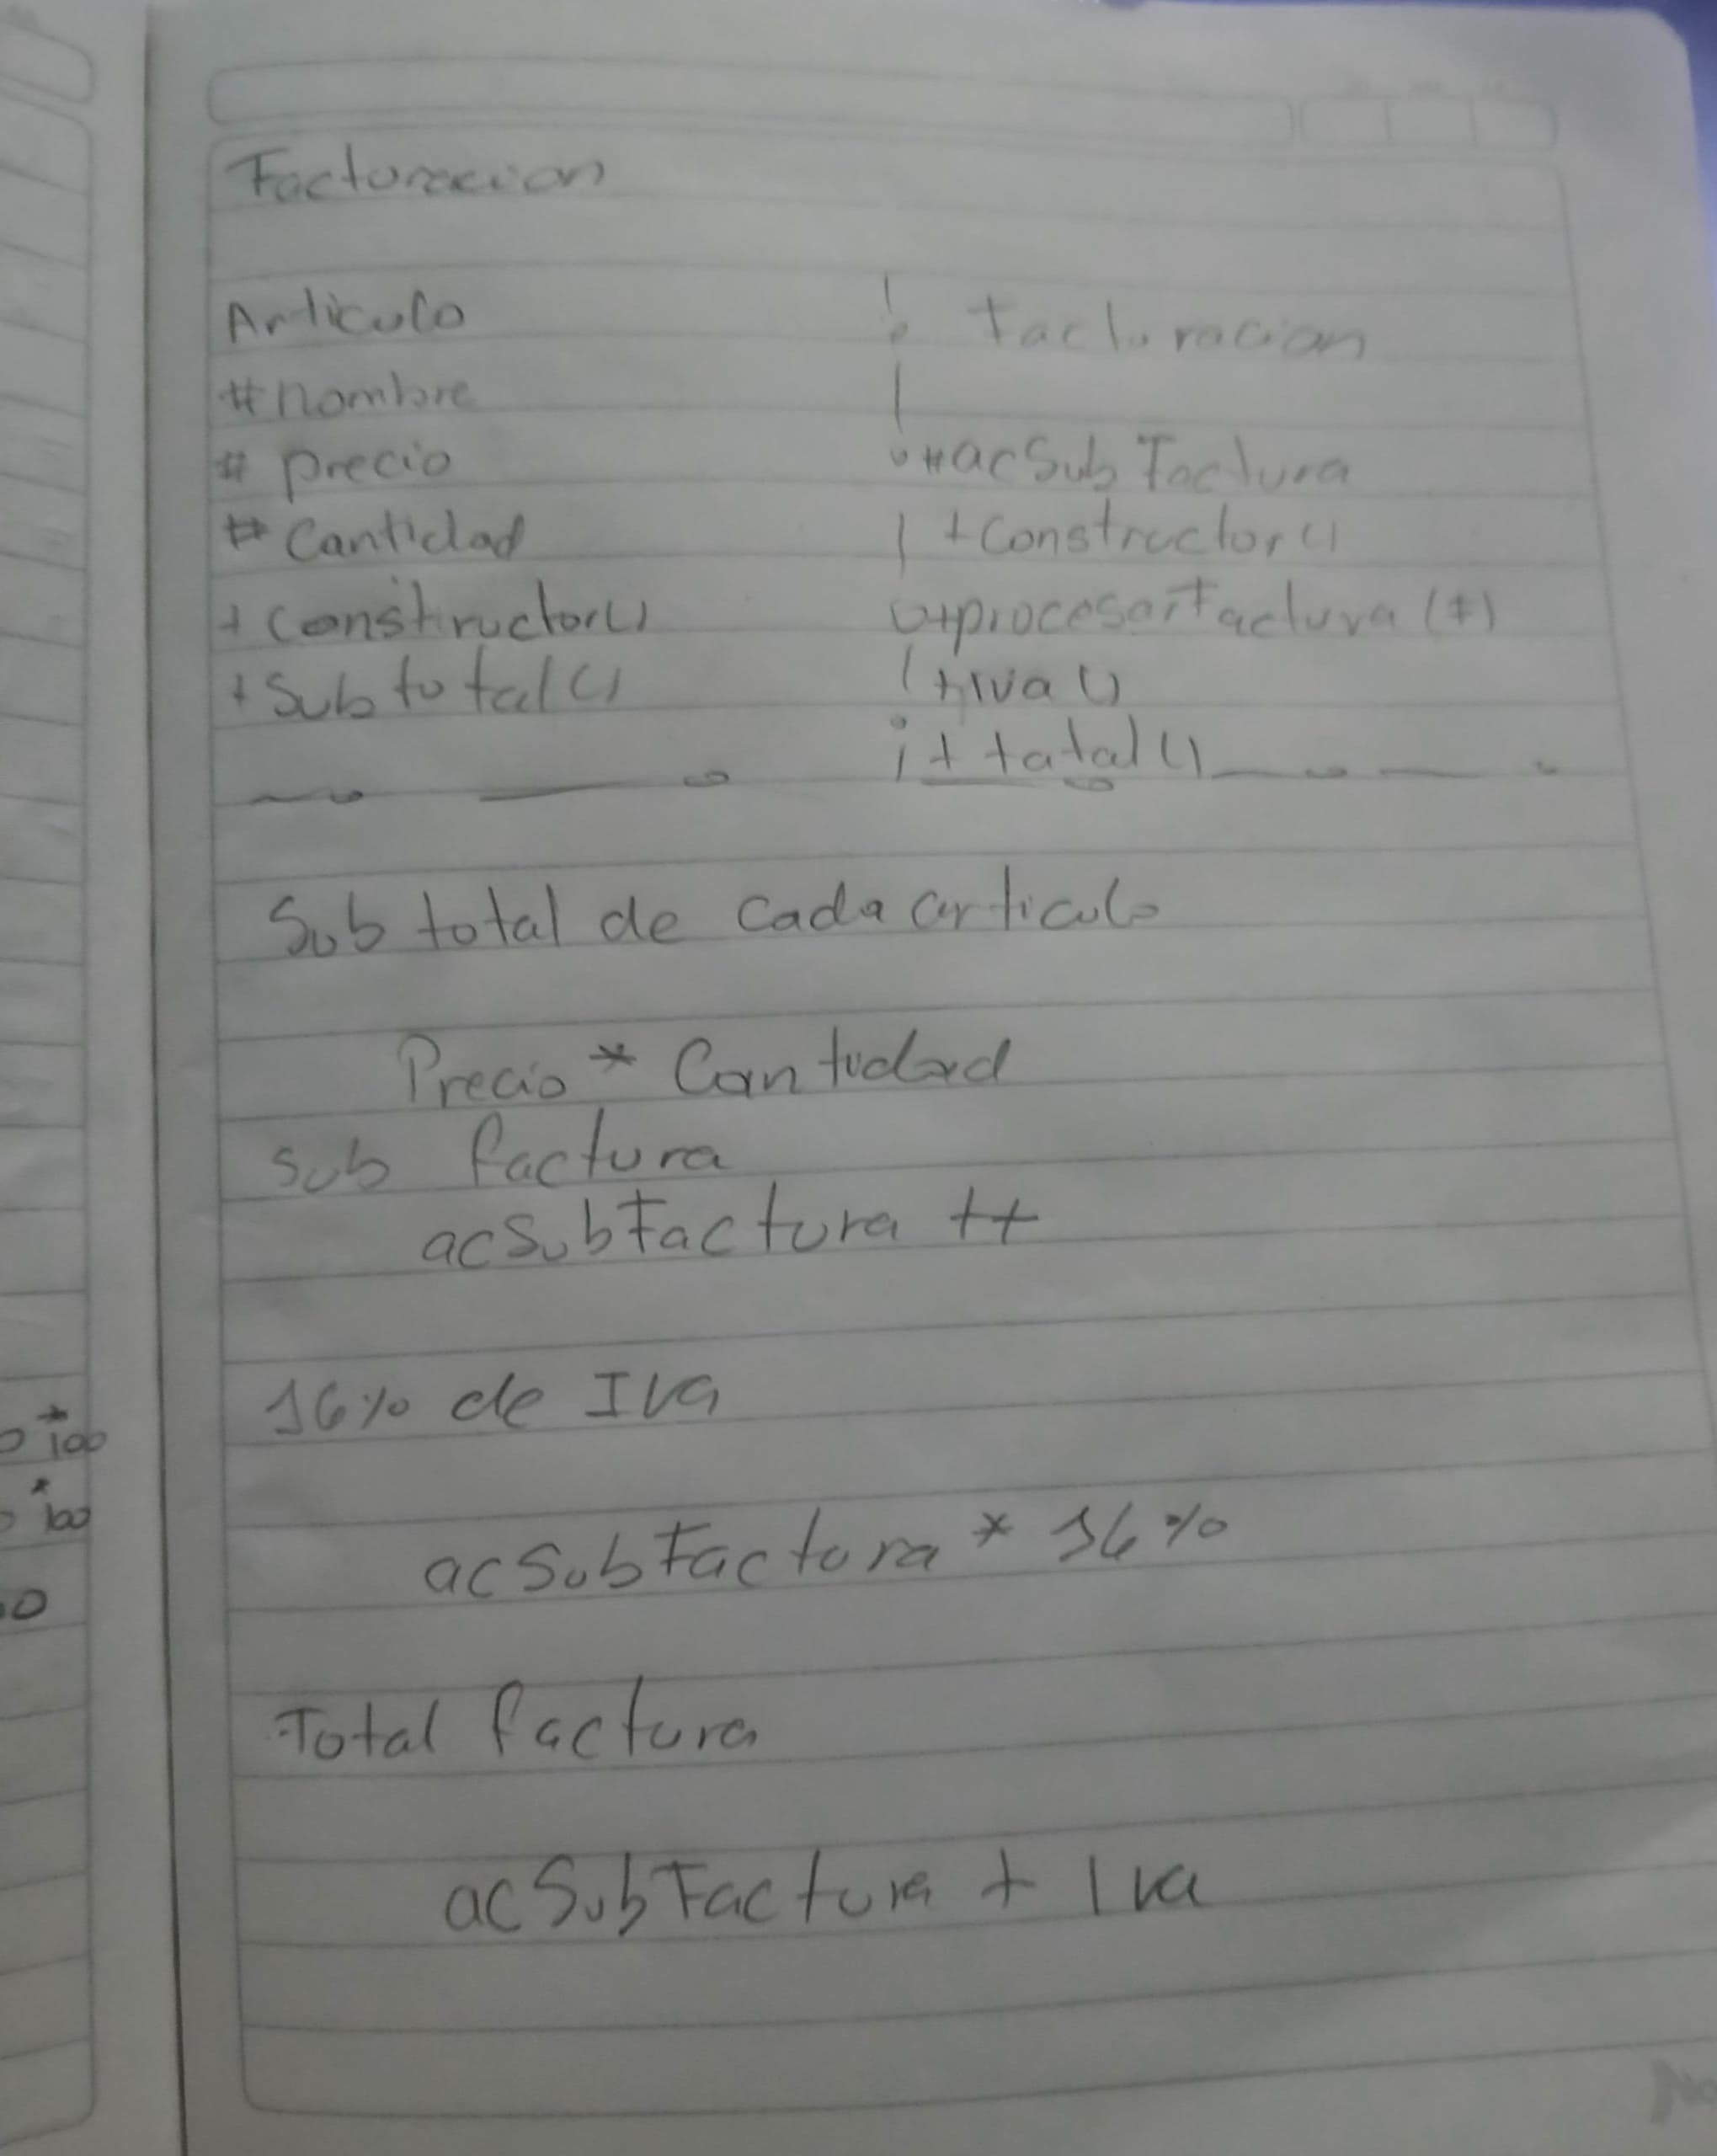 Facturacion
Articulo
#nombre
# precio
# Cantidad
+ Constructor()
+ Subtotal()
Facturacion
#acSubFactura
+Constructor()
+procesarFactura(f)
+iva()
+ tatal()
Sub total de cada articulo
Precio * Cantidad
sub factura
acSubFactura ++
16% de IVA
acSubFactura * 16%
Total factura
acSubFactura + Iva
* 100
* 100
0